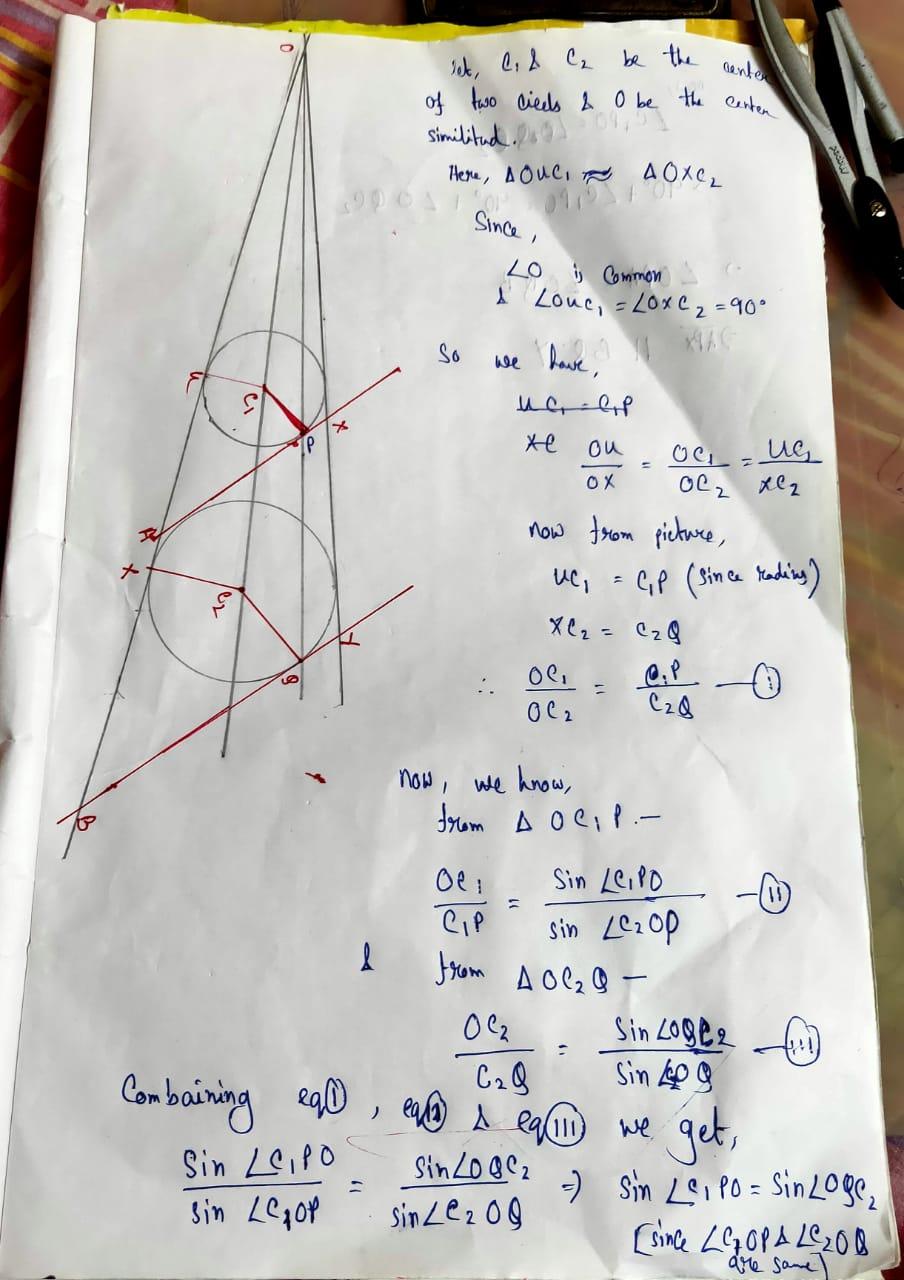 O
Let, C₁ & C₂ be the center
of two cicels & O be the center
similitud.
Here, ΔOUC₁ ≈ ΔOXC₂
Since,
∠O is common
& ∠OUC₁ = ∠OXC₂ = 90°
So we have,
UC₁ = C₁P
XC
OU/OX = OC₁/OC₂ = UC₁/XC₂
now from picture,
UC₁ = C₁P (since radius)
XC₂ = C₂Q
∴ OC₁/OC₂ = C₁P/C₂Q —(i)
now, we know,
from Δ OC₁P.—
OC₁/C₁P = Sin ∠C₁PO/sin ∠C₂OP —(ii)
& from Δ OC₂Q —
OC₂/C₂Q = Sin ∠OQC₂/Sin ∠ O Q —(iii)
Combaining eq(i), eq(ii) & eq(iii) we get,
Sin ∠C₁PO/sin ∠C₁OP = Sin∠OQC₂/sin∠C₂OQ ⇒ Sin ∠C₁PO = Sin∠OQC₂
[since ∠C₁OP & ∠C₂OQ
are same]
C₁
P
X
A
X
C₂
Y
Q
B